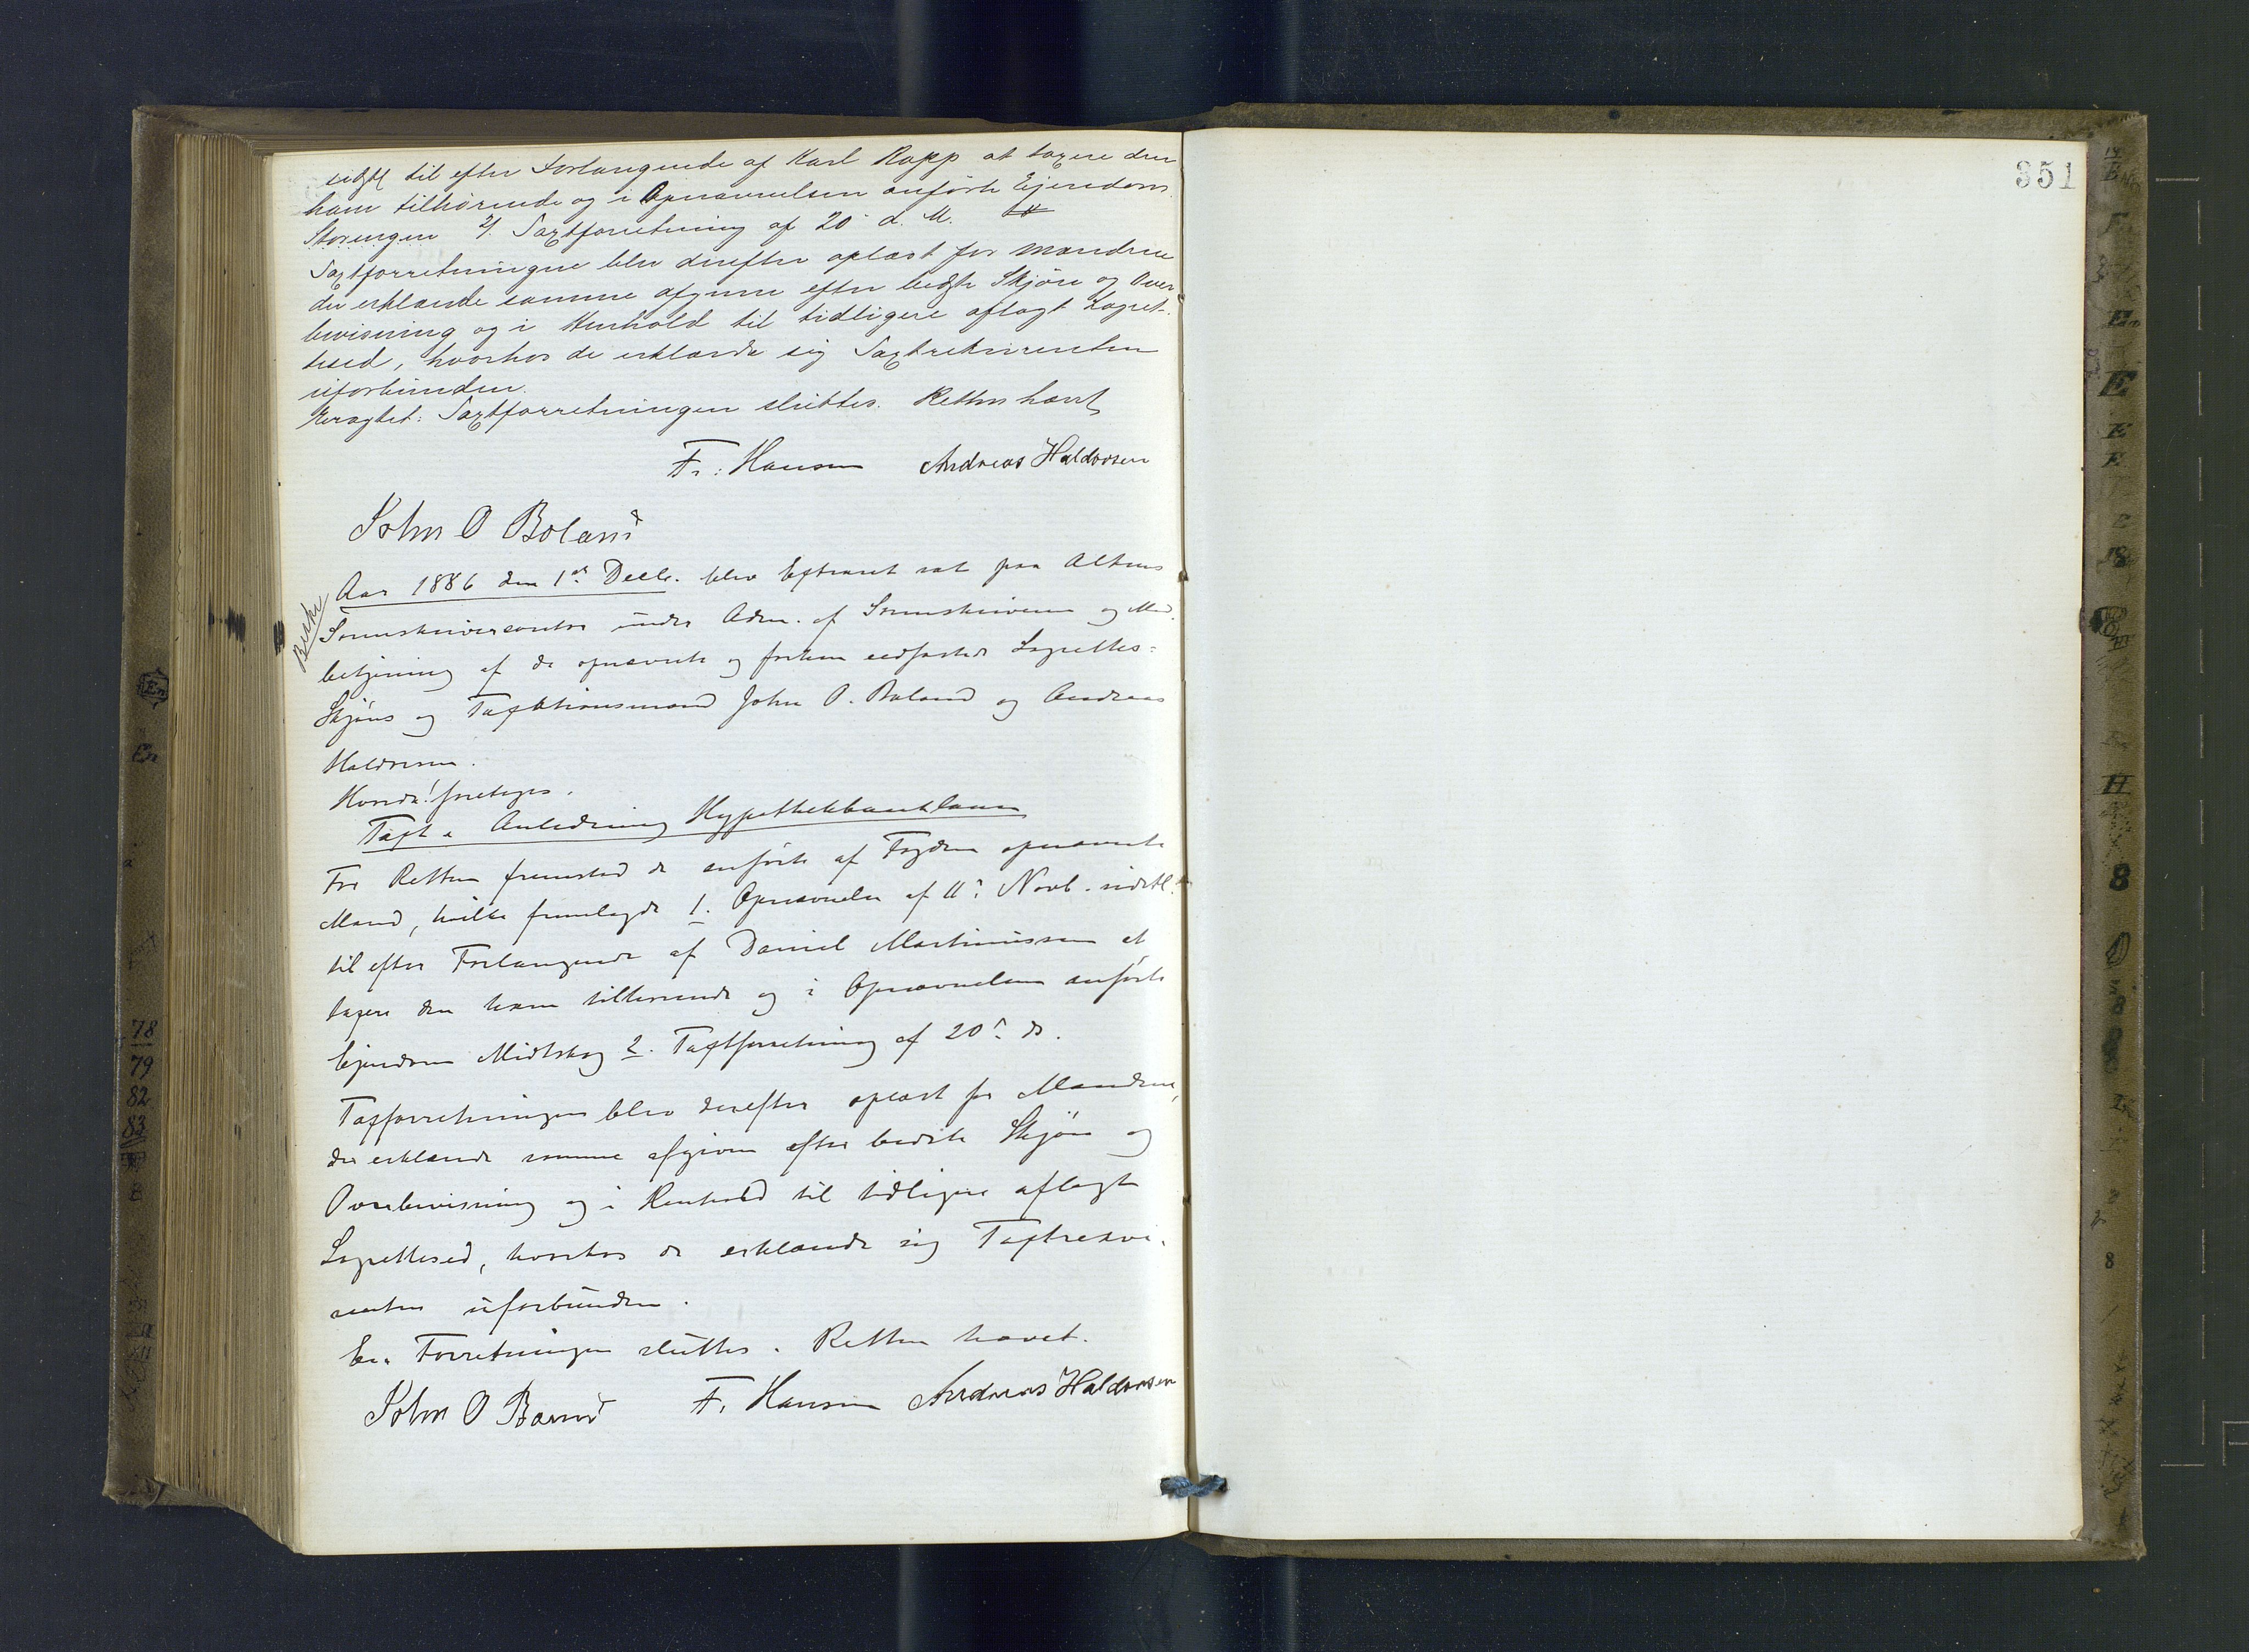 sidstl til efter Forlangende af Karl Rapp at taxere den
ham tilhørende og i Opnævnelsen anførte Ejendom
Storengen 2/. Taxtforretning af 20 d. M.
Taxtforretningen blev derefter oplæst for Mændene
der erklærede samme afgiven efter bedste Skjøn og Over
bevisning og i Henhold til tidligere aflagt Lagret-
tesed, hvorhos de erklærede sig Taxtrekvirenten
uforbunden.
Eragtet: Taxtforretningen sluttes. Retten hævet
Fr. Hansen Andreas Haldorsen
John O Boland
Aar 1886 den 1ste Decbr. blev Extraret sat paa Altens
Sorenskriverkontor under Adm. af Sorenskriveren og Med
betjening af de opnævnte og forhen edfæstede Lagrettes-
Skjøns og Taxtationsmænd John O. Boland og Andreas
Haldorsen.
Hvorda! foretoges.
Taxt i Anledning Hypothekbanklaan
For Retten fremstod de anførte af Fogden opnævnte
Mænd, hvilke fremlagde 1. Opnævnelse af 11te Novb. sidstl.
til efter Forlangende af Daniel Martinussen at
taxere den ham tilhørende og i Opnævnelsen anførte
Ejendom Midtskog 2. Taxtforretning af 20de ds.
Taxforretningen blev derefter oplæst for Mændene,
der erklærede samme afgiven efter bedste Skjøn og
Overbevisning og i Henhold til tidligere aflagt
Lagrettesed, hvorhos de erklærede sig Taxtrekvi-
renten uforbunden.
Er. Forretningen sluttes. Retten hævet.
John O Boland F. Hansen Andreas Haldorsen
351
78
79
82
83